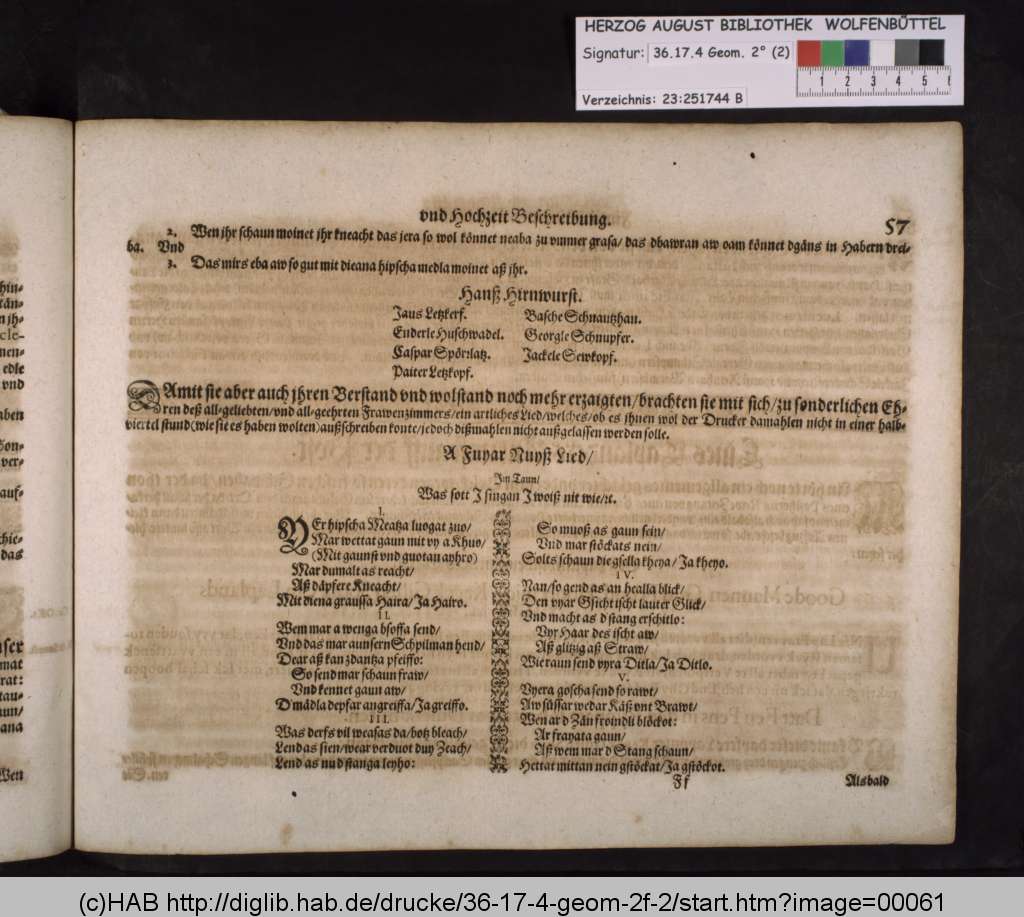 HERZOG AUGUST BIBLIOTHEK WOLFENBÜTTEL
Signatur: 36.17.4 Geom. 2° (2)
1 2 3 4 5 6
Verzeichnis: 23:251744 B
vnd Hochzeit Beschreibung. 57
2. Wen jhr schaun moinet jhr kneacht das jera so wol könnet neaba zu vnmer grasa/ das dbawran aw oam könnet dgäns in Habern drei-
ba. Vnd
3. Das mirs eba aw so gut mit dieana hipscha medla moinet aß jhr.
Hanß Hirnwurst.
Jaus Letzkerf. Basche Schnautzhan.
Enderle Huschwadel. Georgle Schnupfer.
Caspar Spörilatz. Jackele Sewkopf.
Paiter Letzkopf.
DAmit sie aber auch jhren Verstand vnd wolstand noch mehr erzaigten/ brachten sie mit sich/ zu sonderlichen Eh-
ren deß all-geliebten/ vnd all-geehrten Frawenzimmers/ ein artliches Lied/ welches/ ob es jhnen wol der Drucker damahlen nicht in einer halb-
viertel stund (wie sie es haben wolten) außschreiben konte/ jedoch dißmahlen nicht außgelassen werden solle.
A Fuyar Nuyß Lied/
Im Taun/
Was sott J singan J woiß nit wie/ ꝛc.
I.
YEr hipscha Meatza luogat zuo/
Mar wettat gaun mit vy a Khuo/
(Mit gaunst vnd guotan ayhro)
Mar dumalt as reacht/
Aß däpfere Kneacht/
Mit diena graussa Haira/ Ja Hairo.
II.
Wem mar a wenga bsoffa send/
Vnd das mar aunsern Schpilman hend/
Dear aß kan zdantza pfeiffo:
So send mar schaun fraw/
Vnd kennet gaun aw/
D mädla depfar angreiffa/ Ja greiffo.
III.
Was derfs vil weasas da/ botz bleach/
Lend as sien/ wear verduot duy Zeach/
Lend as nu d stanga leyho:
So muoß as gaun sein/
Vnd mar stöckats nein/
Solts schaun die gsella kheya/ Ja kheyo.
IV.
Nan/ so gend as an healla blick/
Den vyar Gsicht ischt lauter Glick/
Vnd macht as d stang erschitlo:
Vyr Haar des ischt aw/
Aß glitzig aß Straw/
Wie raun send vyra Ditla/ Ja Ditlo.
V.
Vyera goscha send so rawt/
Aw süssar wedar Käß vnt Brawt/
Wen ar d Zän froindli blöckot:
Ar frayata gaun/
Aß wem mar d Stang schaun/
Hettat mittan nein gstöckat/ Ja gstöckot.
Ff Alsbald
(c)HAB http://diglib.hab.de/drucke/36-17-4-geom-2f-2/start.htm?image=00061